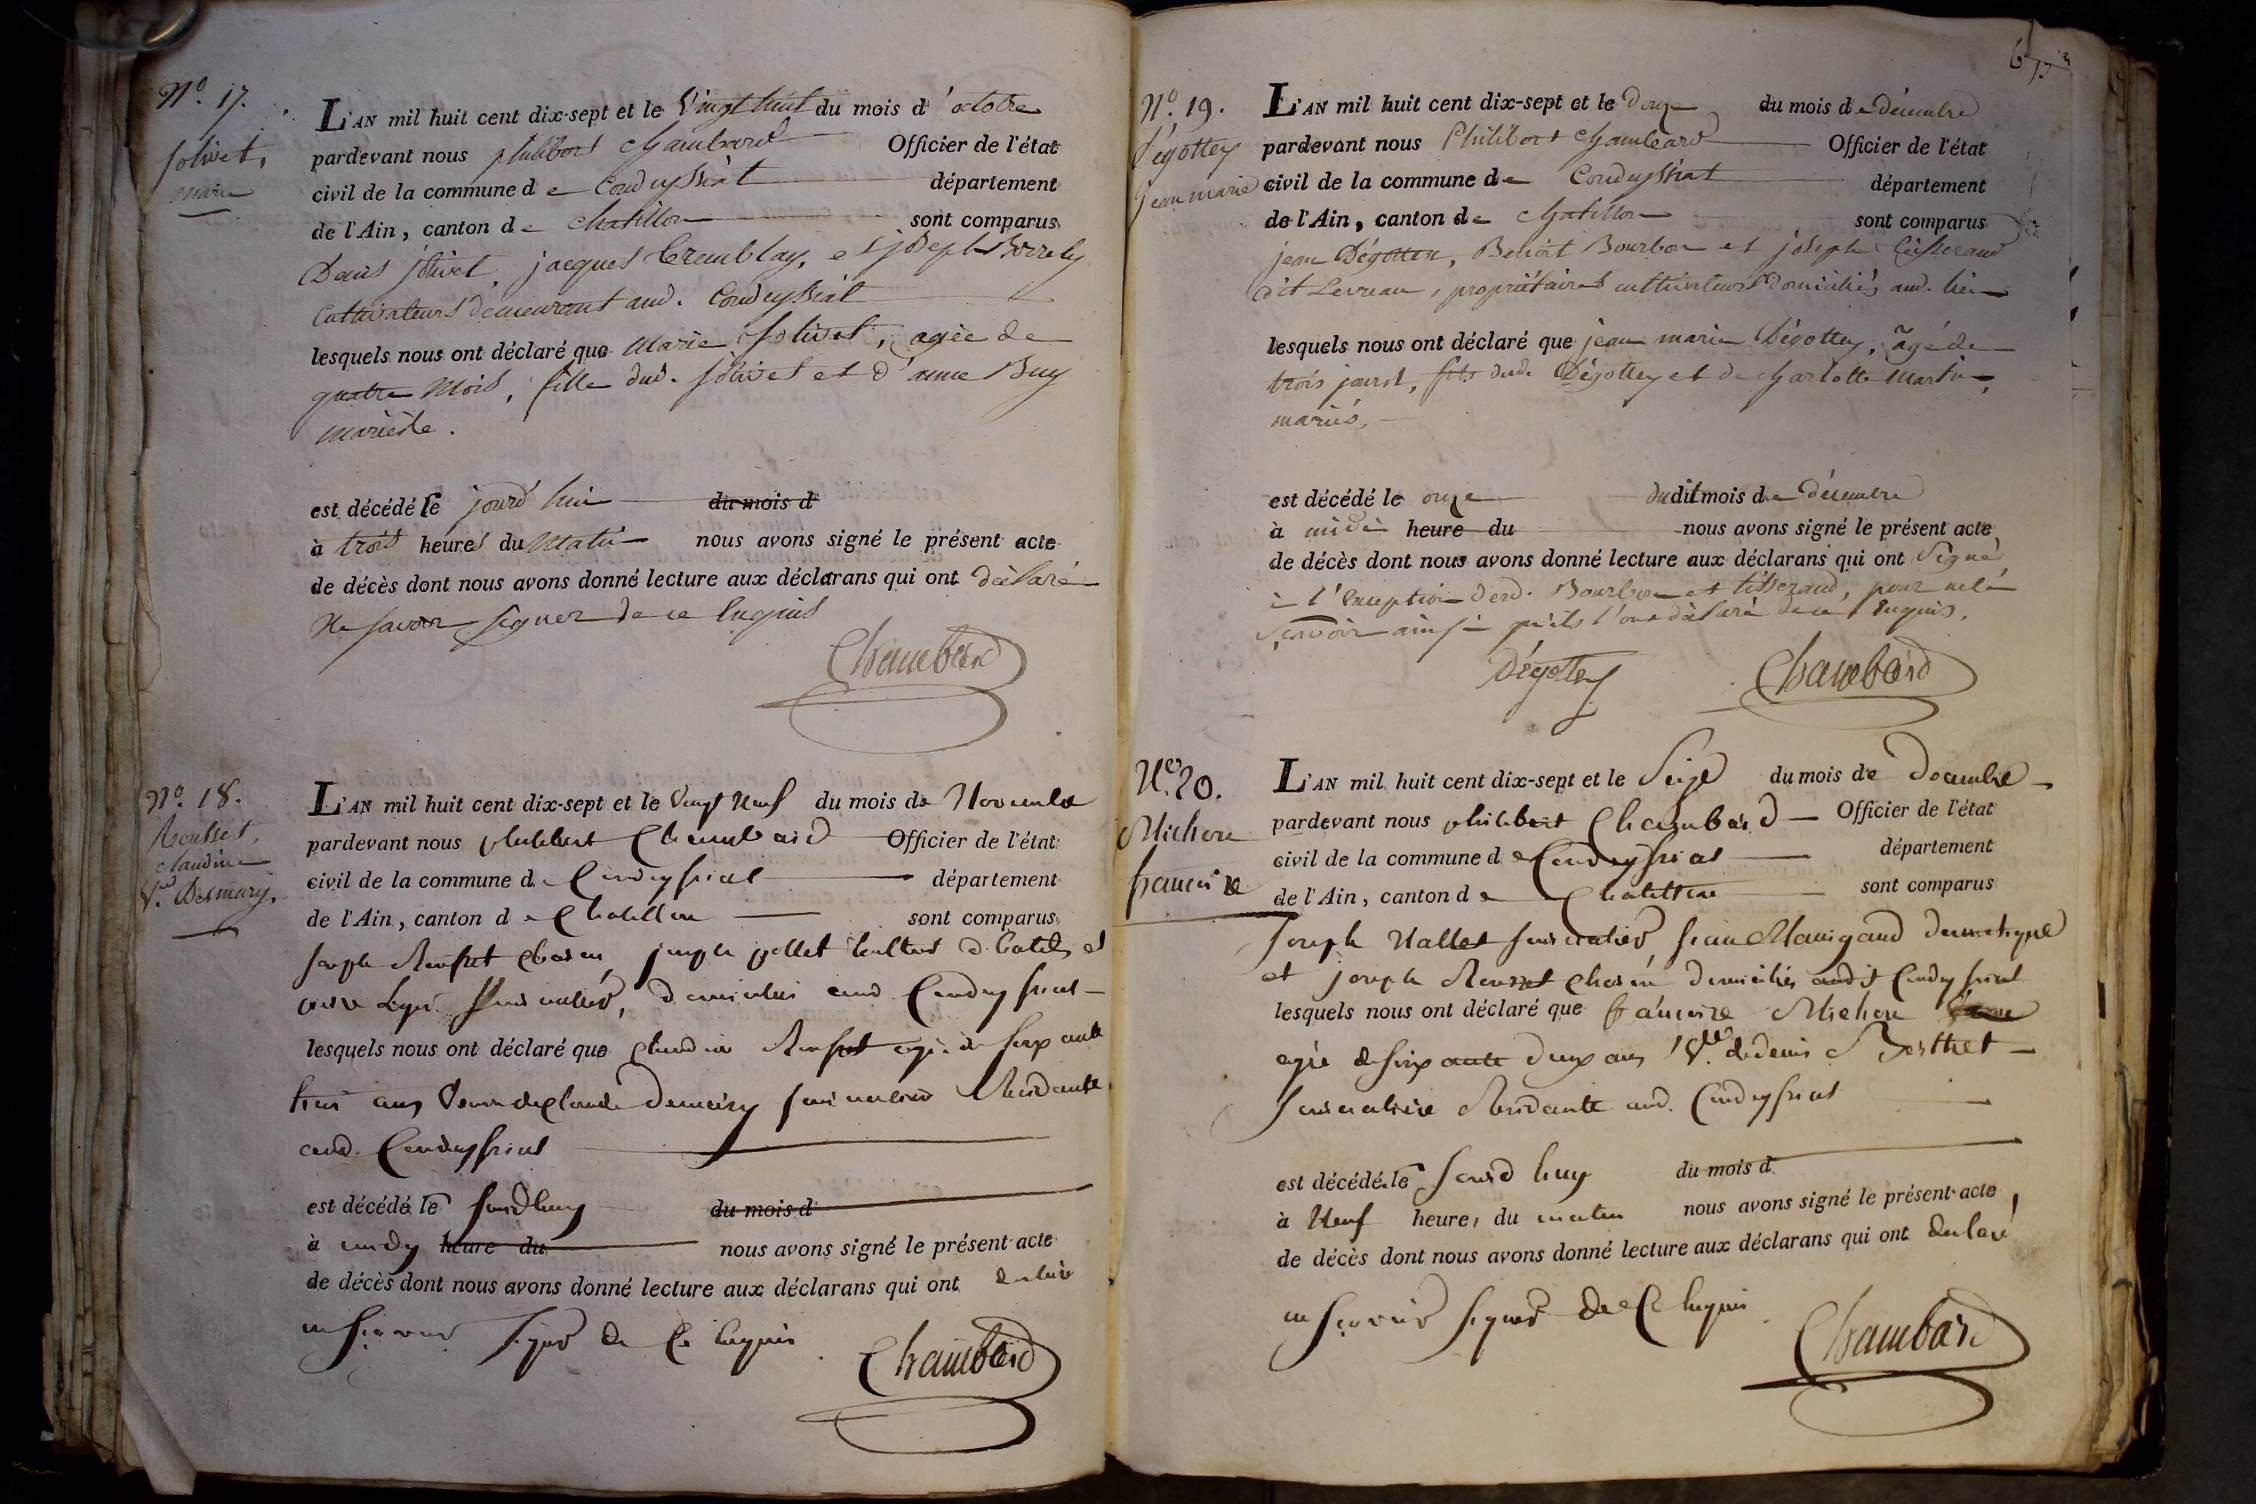 N.º 17.
Jolivet,
marie
L'AN mil huit cent dix-sept et le Vingt huit du mois d'octobre
pardevant nous philibert Chambard Officier de l'état
civil de la commune de Condeyssiat département
de l'Ain, canton de Chatillon sont comparus
Denis jolivet, jacques Tremblay, et joseph
Cultivateurs demeurant aud. Condeyssiat
lesquels nous ont déclaré que Marie Jolivet, agée de
quatre mois, fille dud. jolivet et d'anne Buy
mariés
est décédé le jourd'hui du mois d
à trois heures du Matin nous avons signé le présent acte
de décès dont nous avons donné lecture aux déclarans qui ont déclaré
Ne savoir signer de ce Enquis
Chambard
N.º 18.
Rousset,
claudine
V.e Desmary.
L'AN mil huit cent dix-sept et le Vingt Neuf du mois de Novembre
pardevant nous philibert Chambard Officier de l'état
civil de la commune de Condeyssiat département
de l'Ain, canton de Chatillon sont comparus
joseph Rousset joseph pollet et
domiciliés aud Condeyssiat
lesquels nous ont déclaré que Claudine Rousset agée de soixante
trois ans Veuve de Claude Demary Residante
aud. Condeyssiat
est décédé le jourdhuy du mois d
à midy heure du nous avons signé le présent acte
de décès dont nous avons donné lecture aux déclarans qui ont déclaré
ne sçavoir signer de Ce Enquis
Chambard
6
N.º 19.
Dégottey
Jean marie
L'AN mil huit cent dix-sept et le Douze du mois de décembre
pardevant nous Philibert Chambard Officier de l'état
civil de la commune de Condeyssiat département
de l'Ain, canton de Chatillon sont comparus
jean Dégottey, Benoît Bourbon et joseph tisserand
dit Levreau, propriétaires cultivateurs domiciliés aud. lieu
lesquels nous ont déclaré que jean marie Dégottey, âgé de
trois jours, fils dud. Dégottey et de charlotte Martin,
mariés,
est décédé le onze duditmois de Décembre
à midi heure du nous avons signé le présent acte
de décès dont nous avons donné lecture aux déclarans qui ont Signé,
à l'Exception desd. Bourbon et tisserand, pour ne le
Sçavoir ainsi qu'ils l'ont déclaré de ce Enquis.
Dégottey Chambard
N.º 20.
Michon
francoise
L'AN mil huit cent dix-sept et le Seize du mois de Decembre
pardevant nous philibert Chambard Officier de l'état
civil de la commune de Condeyssiat département
de l'Ain, canton de Chatillon sont comparus
Joseph Vallet journalier, jean Manigand Domestique
et joseph Rousset domiciliés audit Condeyssiat
lesquels nous ont déclaré que francoise Michon
agée de soixante deux ans V.ve de denis Berthet
Journaliere Residante aud. Condeyssiat
est décédé le jourd huy du mois d
à Neuf heures du matin nous avons signé le présent acte,
de décès dont nous avons donné lecture aux déclarans qui ont declaré
ne sçavoir signer de Ce Enquis
Chambard